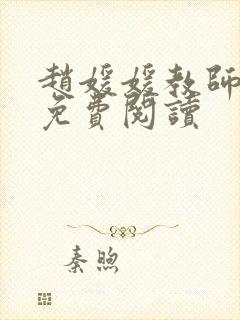 趙媛媛教師
免費閱讀
秦煦